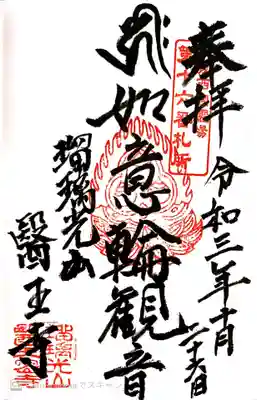 奉拝
令和三年十月
二十六日
第十六番札所
如意輪観音
瑠璃光山
醫王寺